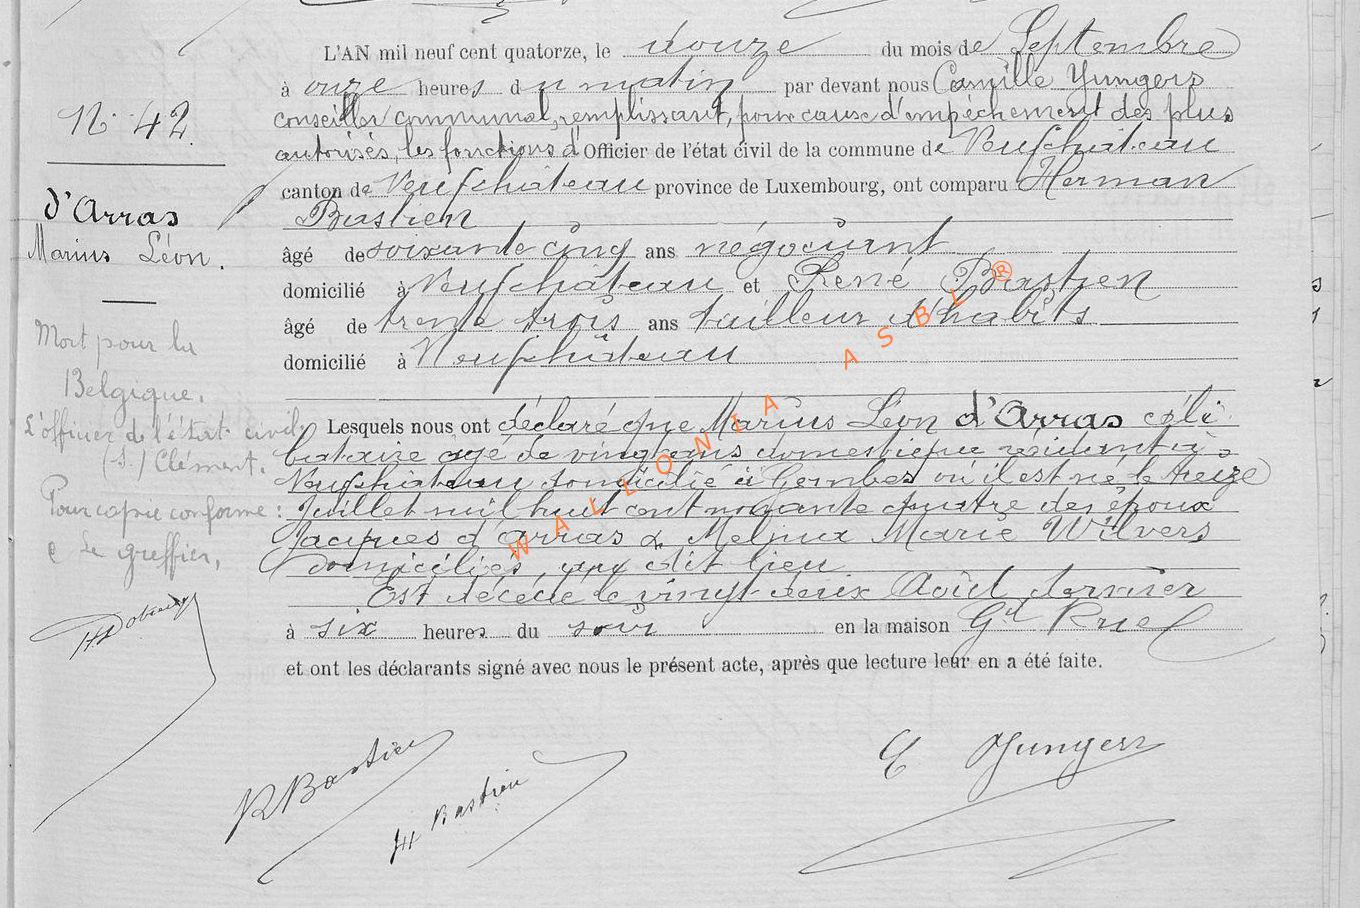 L'AN mil neuf cent quatorze, le douze du mois de Septembre
à onze heures du matin par devant nous Camille Yungers
conseiller communal, remplissant, pour cause d'empéchement des plus
autorisés, les fonctions d'Officier de l'état civil de la commune de Neufchâteau
canton de Neufchâteau province de Luxembourg, ont comparu Herman
Bastien
âgé de soixante cinq ans négociant
domicilié à Neufchâteau et René Bastien
âgé de trente trois ans tailleur d'habits
domicilié à Neufchâteau
Lesquels nous ont déclaré que Marius Léon d'Arras céli
bataire âgé de vingt ans domestique résidant à
Neufchâteau domicilié à Gembes où il est né le treize
Juillet mil huit cent nonante quatre des époux
Jacques d'Arras & Marie Wilvers
domiciliés au dit lieu
Est décédé le vingt-deux Août dernier
à six heures du soir en la maison Gd Ruel
et ont les déclarants signé avec nous le présent acte, après que lecture leur en a été faite.
N° 42.
d'Arras
Marius Léon.
Mort pour la
Belgique.
L'officier de l'état civil
(s.) Clément.
Pour copie conforme :
Le greffier,
R Bastien
H Bastien
C Yungers
WALLONIA ASBL ®